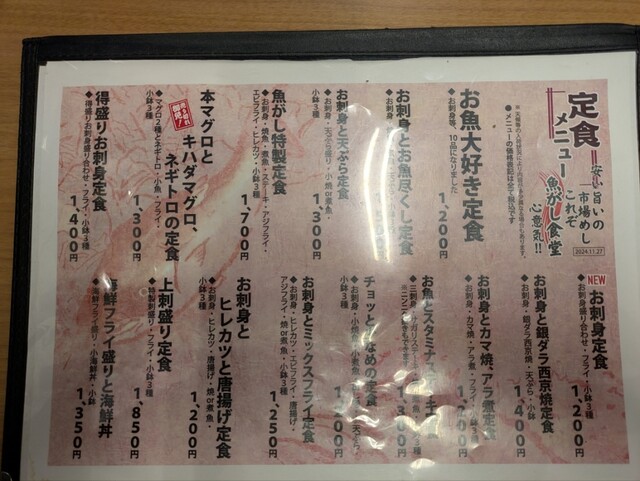 定食
メニュー
安い旨いの
市場めし
これぞ
魚がし食堂
心意気!!
2024.11.27
●メニューの価格表記は全て税込です
お魚大好き定食
◆お刺身等、10品になりました
1,200円
お刺身とお魚尽くし定食
1,500円
お刺身と天ぷら定食
◆お刺身・天ぷら盛り・小鉢 or 煮魚・
小鉢3種
1,300円
魚がし特製定食
◆お刺身・焼魚・煮魚・ステーキ・アジフライ・
エビフライ・ヒレカツ・小鉢3種
1,700円
本マグロと
キハダマグロ、
ネギトロの定食
◆マグロ2種とネギトロ・小魚・フライ・
小鉢3種
1,300円
得盛りお刺身定食
◆得盛りお刺身盛り合わせ・フライ・小鉢3種
1,400円
NEW
お刺身定食
◆お刺身盛り合わせ・フライ・小鉢3種
1,200円
お刺身と銀ダラ西京焼定食
◆お刺身・銀ダラ西京焼・天ぷら・小鉢
1,400円
お刺身とカマ焼、アラ煮定食
◆お刺身・カマ焼・アラ煮・フライ・小鉢3種
1,200円
お魚とスタミナス
1,300円
チョッとしなめの定食
小鉢3種
お刺身とミックスフライ定食
◆お刺身・ヒレカツ・エビフライ・
アジフライ・焼 or 煮魚・小鉢3種
1,250円
お刺身と
ヒレカツと唐揚げ定食
◆お刺身・ヒレカツ・唐揚げ・焼 or 煮魚・
小鉢3種
1,200円
上刺盛り定食
◆特製刺盛り・フライ・小鉢3種
1,850円
海鮮フライ盛りと海鮮丼
◆海鮮フライ盛り・小海鮮丼・小鉢
1,350円